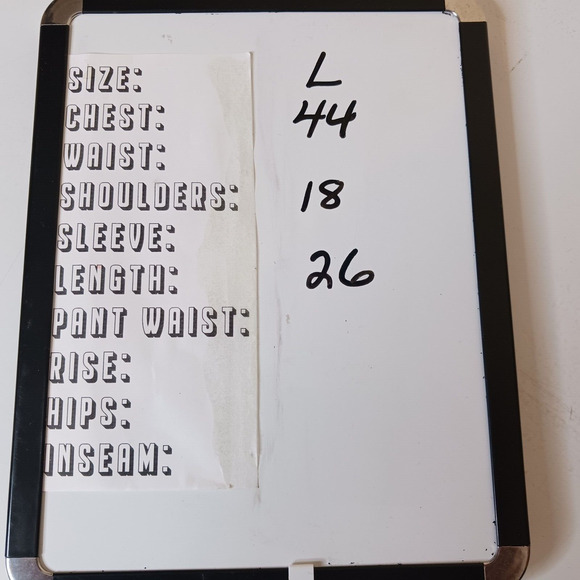 SIZE: L
CHEST: 44
WAIST:
SHOULDERS: 18
SLEEVE:
LENGTH: 26
PANT WAIST:
RISE:
HIPS:
INSEAM: